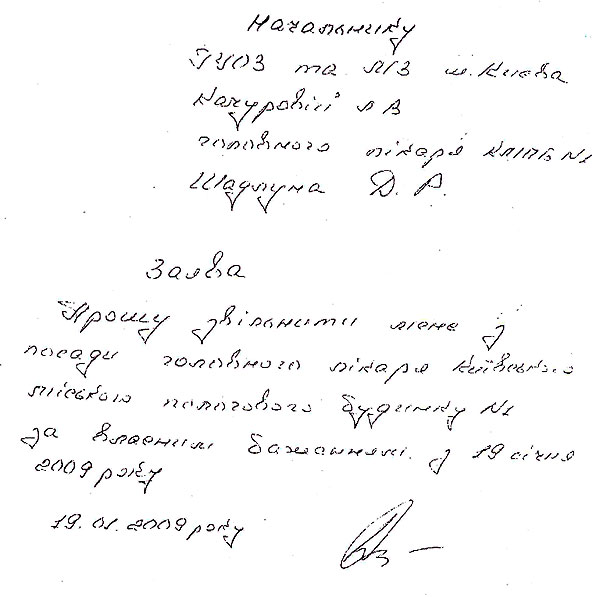 Начальнику
ГУОЗ та МЗ м. Києва
Качуровій Л В
головного лікаря КМПБ №1
Шадлуна Д. Р.
Заява
Прошу звільнити мене з
посади головного лікаря Київського
міського пологового будинку №1
за власним бажанням. з 19 січня
2009 року
19.01.2009 року